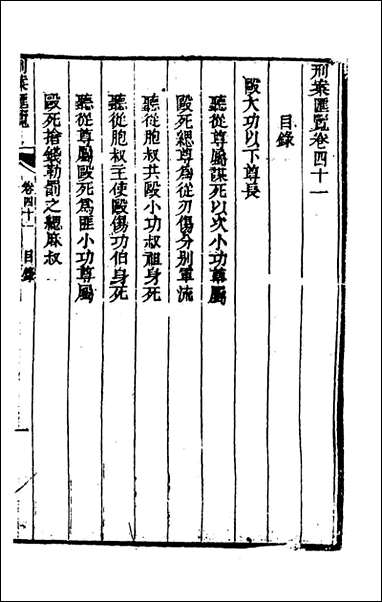 刑案匯覽卷四十一
目錄
毆大功以下尊長
聽從尊屬謀死以次小功尊屬
毆死緦尊為從刃傷分別軍流
聽從胞叔共毆小功叔祖身死
聽從胞叔主使毆傷功伯身死
聽從尊屬毆死為匪小功尊屬
毆死搶錢勒罰之緦麻叔
刑案匯覽
卷四十一 目錄